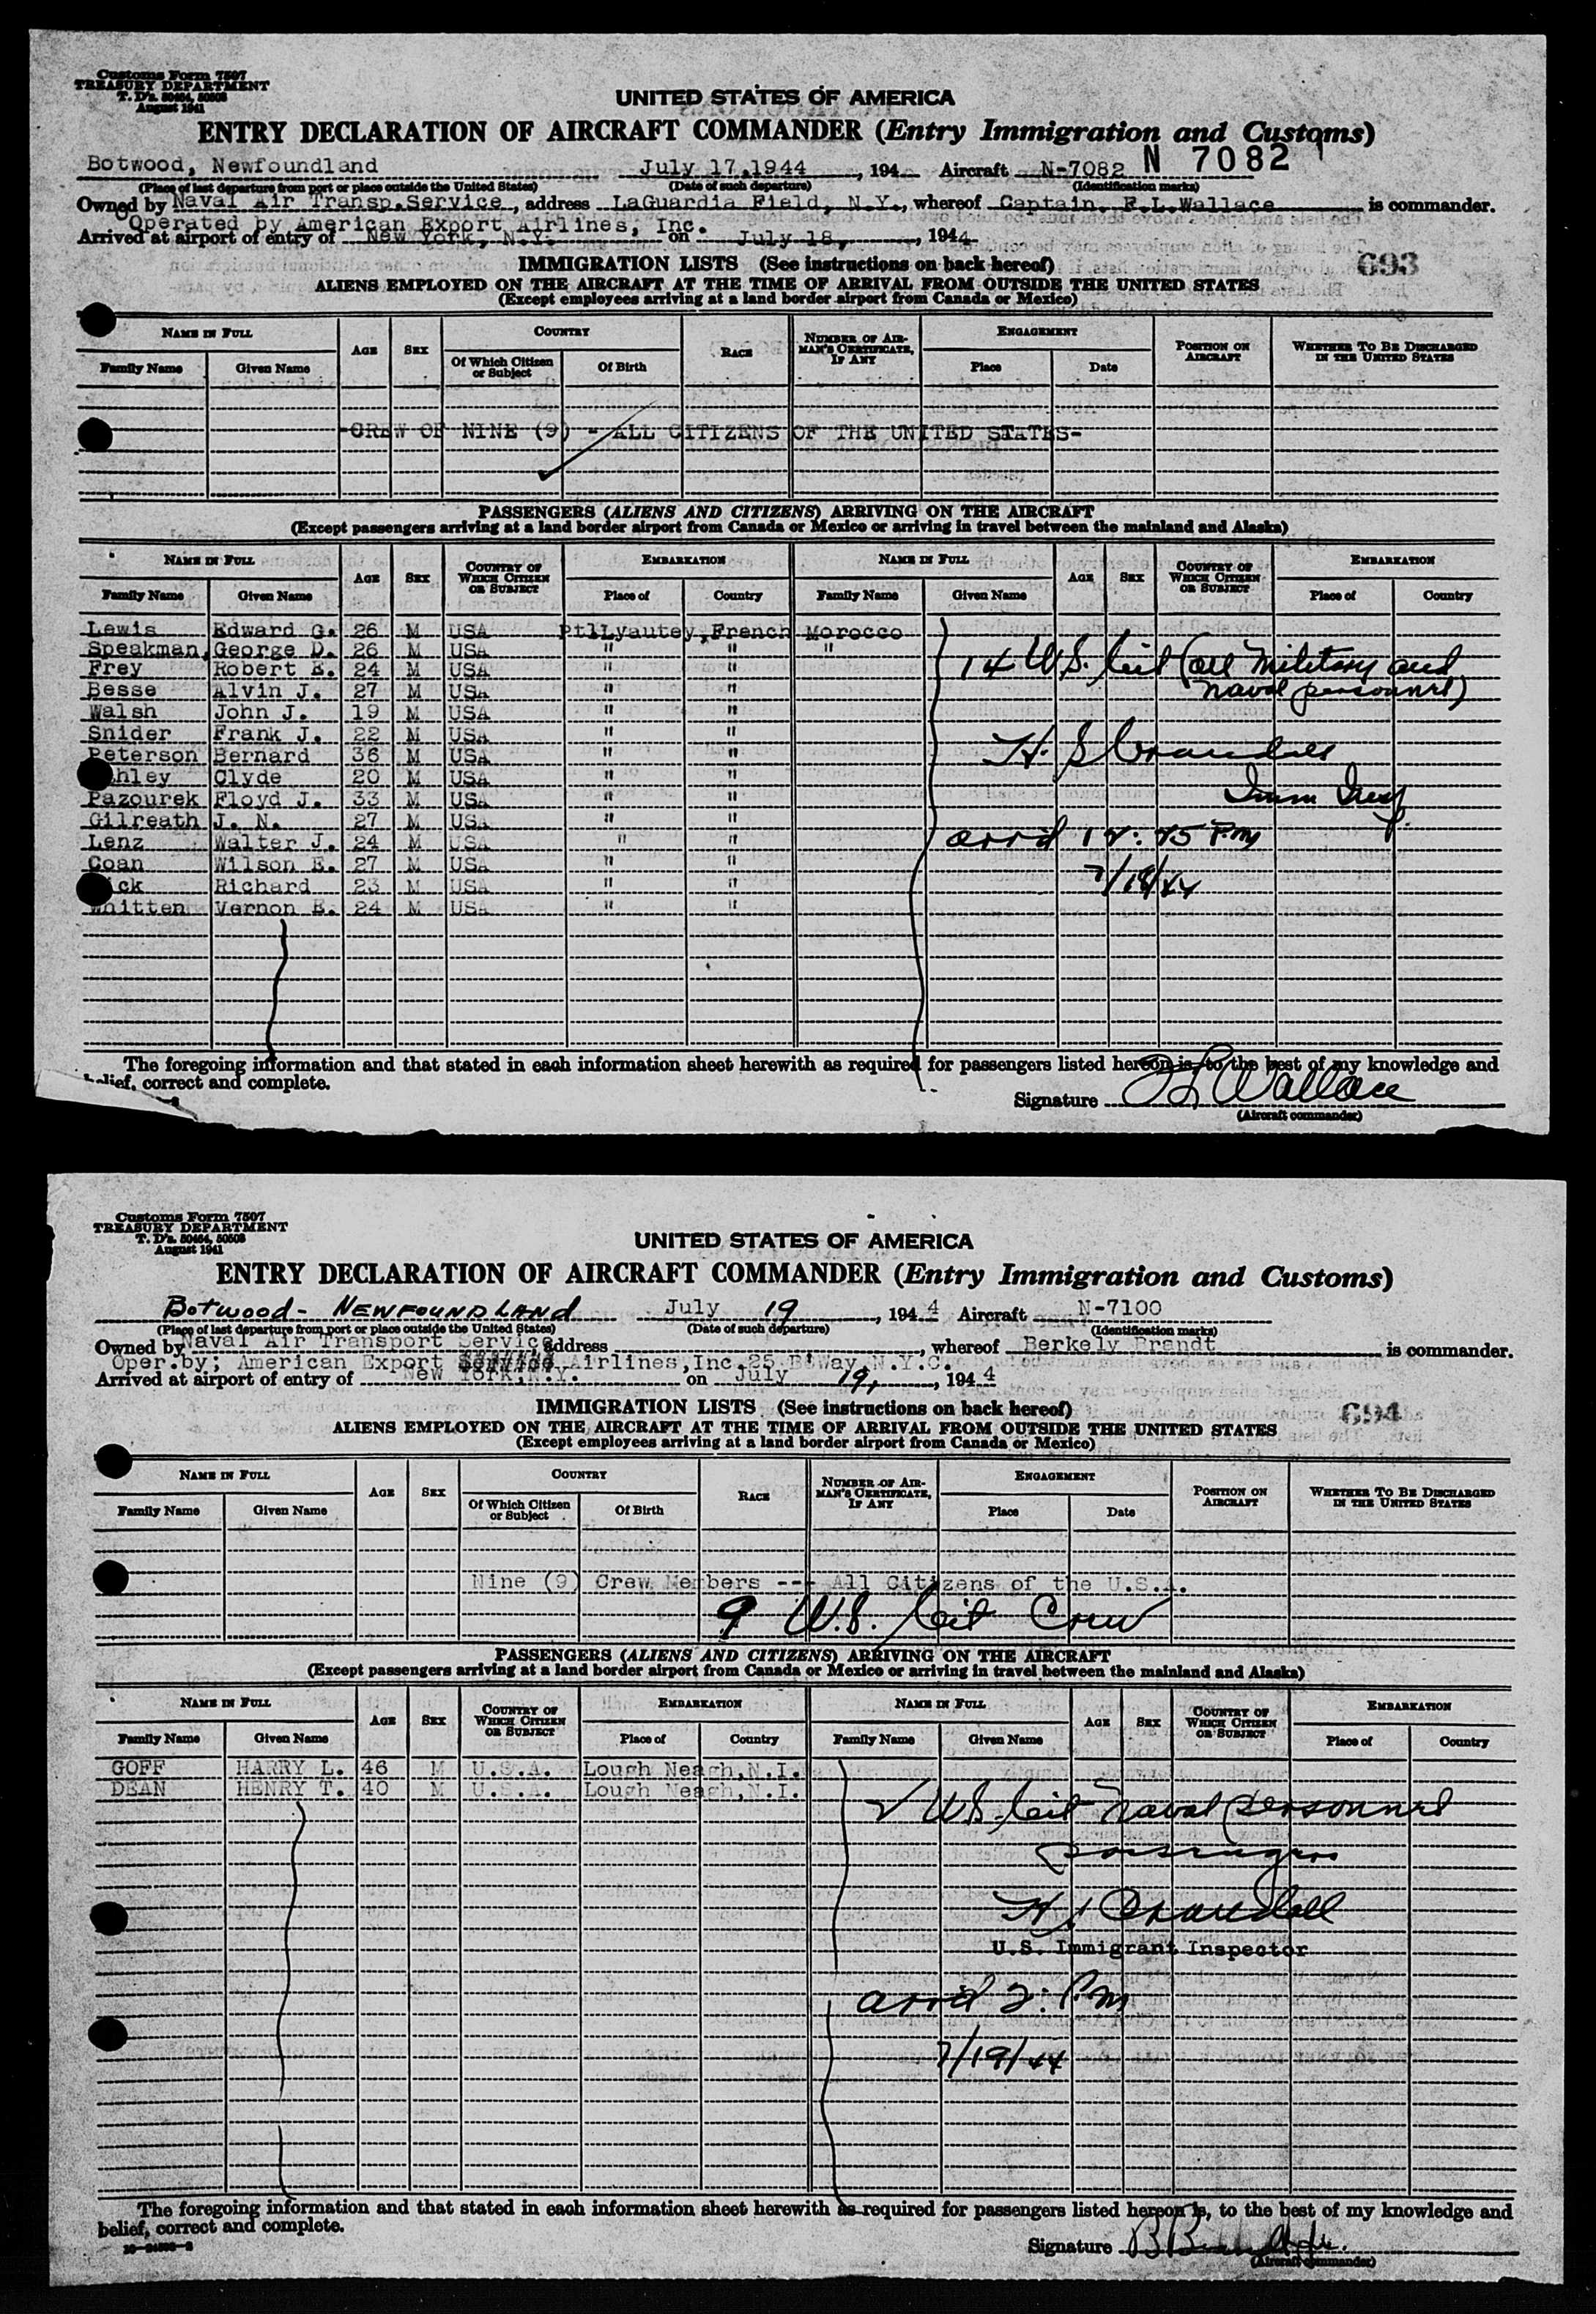 Customs Form 7507
TREASURY DEPARTMENT
T. D's. 50464, 50508
August 1941
UNITED STATES OF AMERICA
ENTRY DECLARATION OF AIRCRAFT COMMANDER (Entry Immigration and Customs)
Botwood, Newfoundland July 17,1944, 194 Aircraft N-7082 N 7082
(Place of last departure from port or place outside the United States) (Date of such departure) (Identification marks)
Owned by Naval Air Transp.Service, address LaGuardia Field, N.Y., whereof Captain F.L.Wallace is commander.
Operated by American Export Airlines, Inc.
Arrived at airport of entry of New York, N.Y. on July 18, 1944
IMMIGRATION LISTS (See instructions on back hereof) 693
ALIENS EMPLOYED ON THE AIRCRAFT AT THE TIME OF ARRIVAL FROM OUTSIDE THE UNITED STATES
(Except employees arriving at a land border airport from Canada or Mexico)
NAME IN FULL AGE SEX COUNTRY RACE NUMBER OF AIRMAN'S CERTIFICATE, IF ANY ENGAGEMENT POSITION ON AIRCRAFT WHETHER TO BE DISCHARGED IN THE UNITED STATES
Family Name Given Name Of Which Citizen or Subject Of Birth Place Date
-CREW OF NINE (9) - ALL CITIZENS OF THE UNITED STATES-
PASSENGERS (ALIENS AND CITIZENS) ARRIVING ON THE AIRCRAFT
(Except passengers arriving at a land border airport from Canada or Mexico or arriving in travel between the mainland and Alaska)
NAME IN FULL AGE SEX COUNTRY OF WHICH CITIZEN OR SUBJECT EMBARKATION NAME IN FULL AGE SEX COUNTRY OF WHICH CITIZEN OR SUBJECT EMBARKATION
Family Name Given Name Place of Country Family Name Given Name Place of Country
Lewis Edward G. 26 M USA PtlLyautey,French Morocco
Speakman, George D. 26 M USA " " "
Frey Robert E. 24 M USA " " 14 U.S. Cit (all military and
Besse Alvin J. 27 M USA " " naval personnel)
Walsh John J. 19 M USA " "
Snider Frank J. 22 M USA " "
Peterson Bernard 36 M USA " " H. S Crandall
hley Clyde 20 M USA " "
Pazourek Floyd J. 33 M USA " " Imm Insp.
Gilreath J. N. 27 M USA " "
Lenz Walter J. 24 M USA " " arrid 12:25 P.m
Coan Wilson E. 27 M USA " "
ck Richard 23 M USA " " 7/18/44
Whitten Vernon E. 24 M USA " "
The foregoing information and that stated in each information sheet herewith as required for passengers listed hereon is, to the best of my knowledge and
belief, correct and complete.
Signature F L Wallace
(Aircraft commander)
Customs Form 7507
TREASURY DEPARTMENT
T. D's. 50464, 50508
August 1941
UNITED STATES OF AMERICA
ENTRY DECLARATION OF AIRCRAFT COMMANDER (Entry Immigration and Customs)
Botwood - NEWFOUNDLAND July 19, 1944 Aircraft N-7100
(Place of last departure from port or place outside the United States) (Date of such departure) (Identification marks)
Owned by Naval Air Transport Service, address , whereof Berkely Brandt is commander.
Oper.by; American Export Airlines,Inc.25 B'Way,N.Y.C.
Arrived at airport of entry of New York,N.Y. on July 19, 1944
IMMIGRATION LISTS (See instructions on back hereof) 694
ALIENS EMPLOYED ON THE AIRCRAFT AT THE TIME OF ARRIVAL FROM OUTSIDE THE UNITED STATES
(Except employees arriving at a land border airport from Canada or Mexico)
NAME IN FULL AGE SEX COUNTRY RACE NUMBER OF AIRMAN'S CERTIFICATE, IF ANY ENGAGEMENT POSITION ON AIRCRAFT WHETHER TO BE DISCHARGED IN THE UNITED STATES
Family Name Given Name Of Which Citizen or Subject Of Birth Place Date
Nine (9) Crew Members --- All Citizens of the U.S.A.
9 U.S. Cit Crew
PASSENGERS (ALIENS AND CITIZENS) ARRIVING ON THE AIRCRAFT
(Except passengers arriving at a land border airport from Canada or Mexico or arriving in travel between the mainland and Alaska)
NAME IN FULL AGE SEX COUNTRY OF WHICH CITIZEN OR SUBJECT EMBARKATION NAME IN FULL AGE SEX COUNTRY OF WHICH CITIZEN OR SUBJECT EMBARKATION
Family Name Given Name Place of Country Family Name Given Name Place of Country
GOFF HARRY L. 46 M U.S.A. Lough Neagh,N.I.
DEAN HENRY T. 40 M U.S.A. Lough Neagh,N.I.
2 U.S. Cit naval personnel
passengers
H S Crandall
U.S. Immigrant Inspector
arrid 2: P.m
7/19/44
The foregoing information and that stated in each information sheet herewith as required for passengers listed hereon is, to the best of my knowledge and
belief, correct and complete.
Signature B Brandt Jr.
(Aircraft commander)